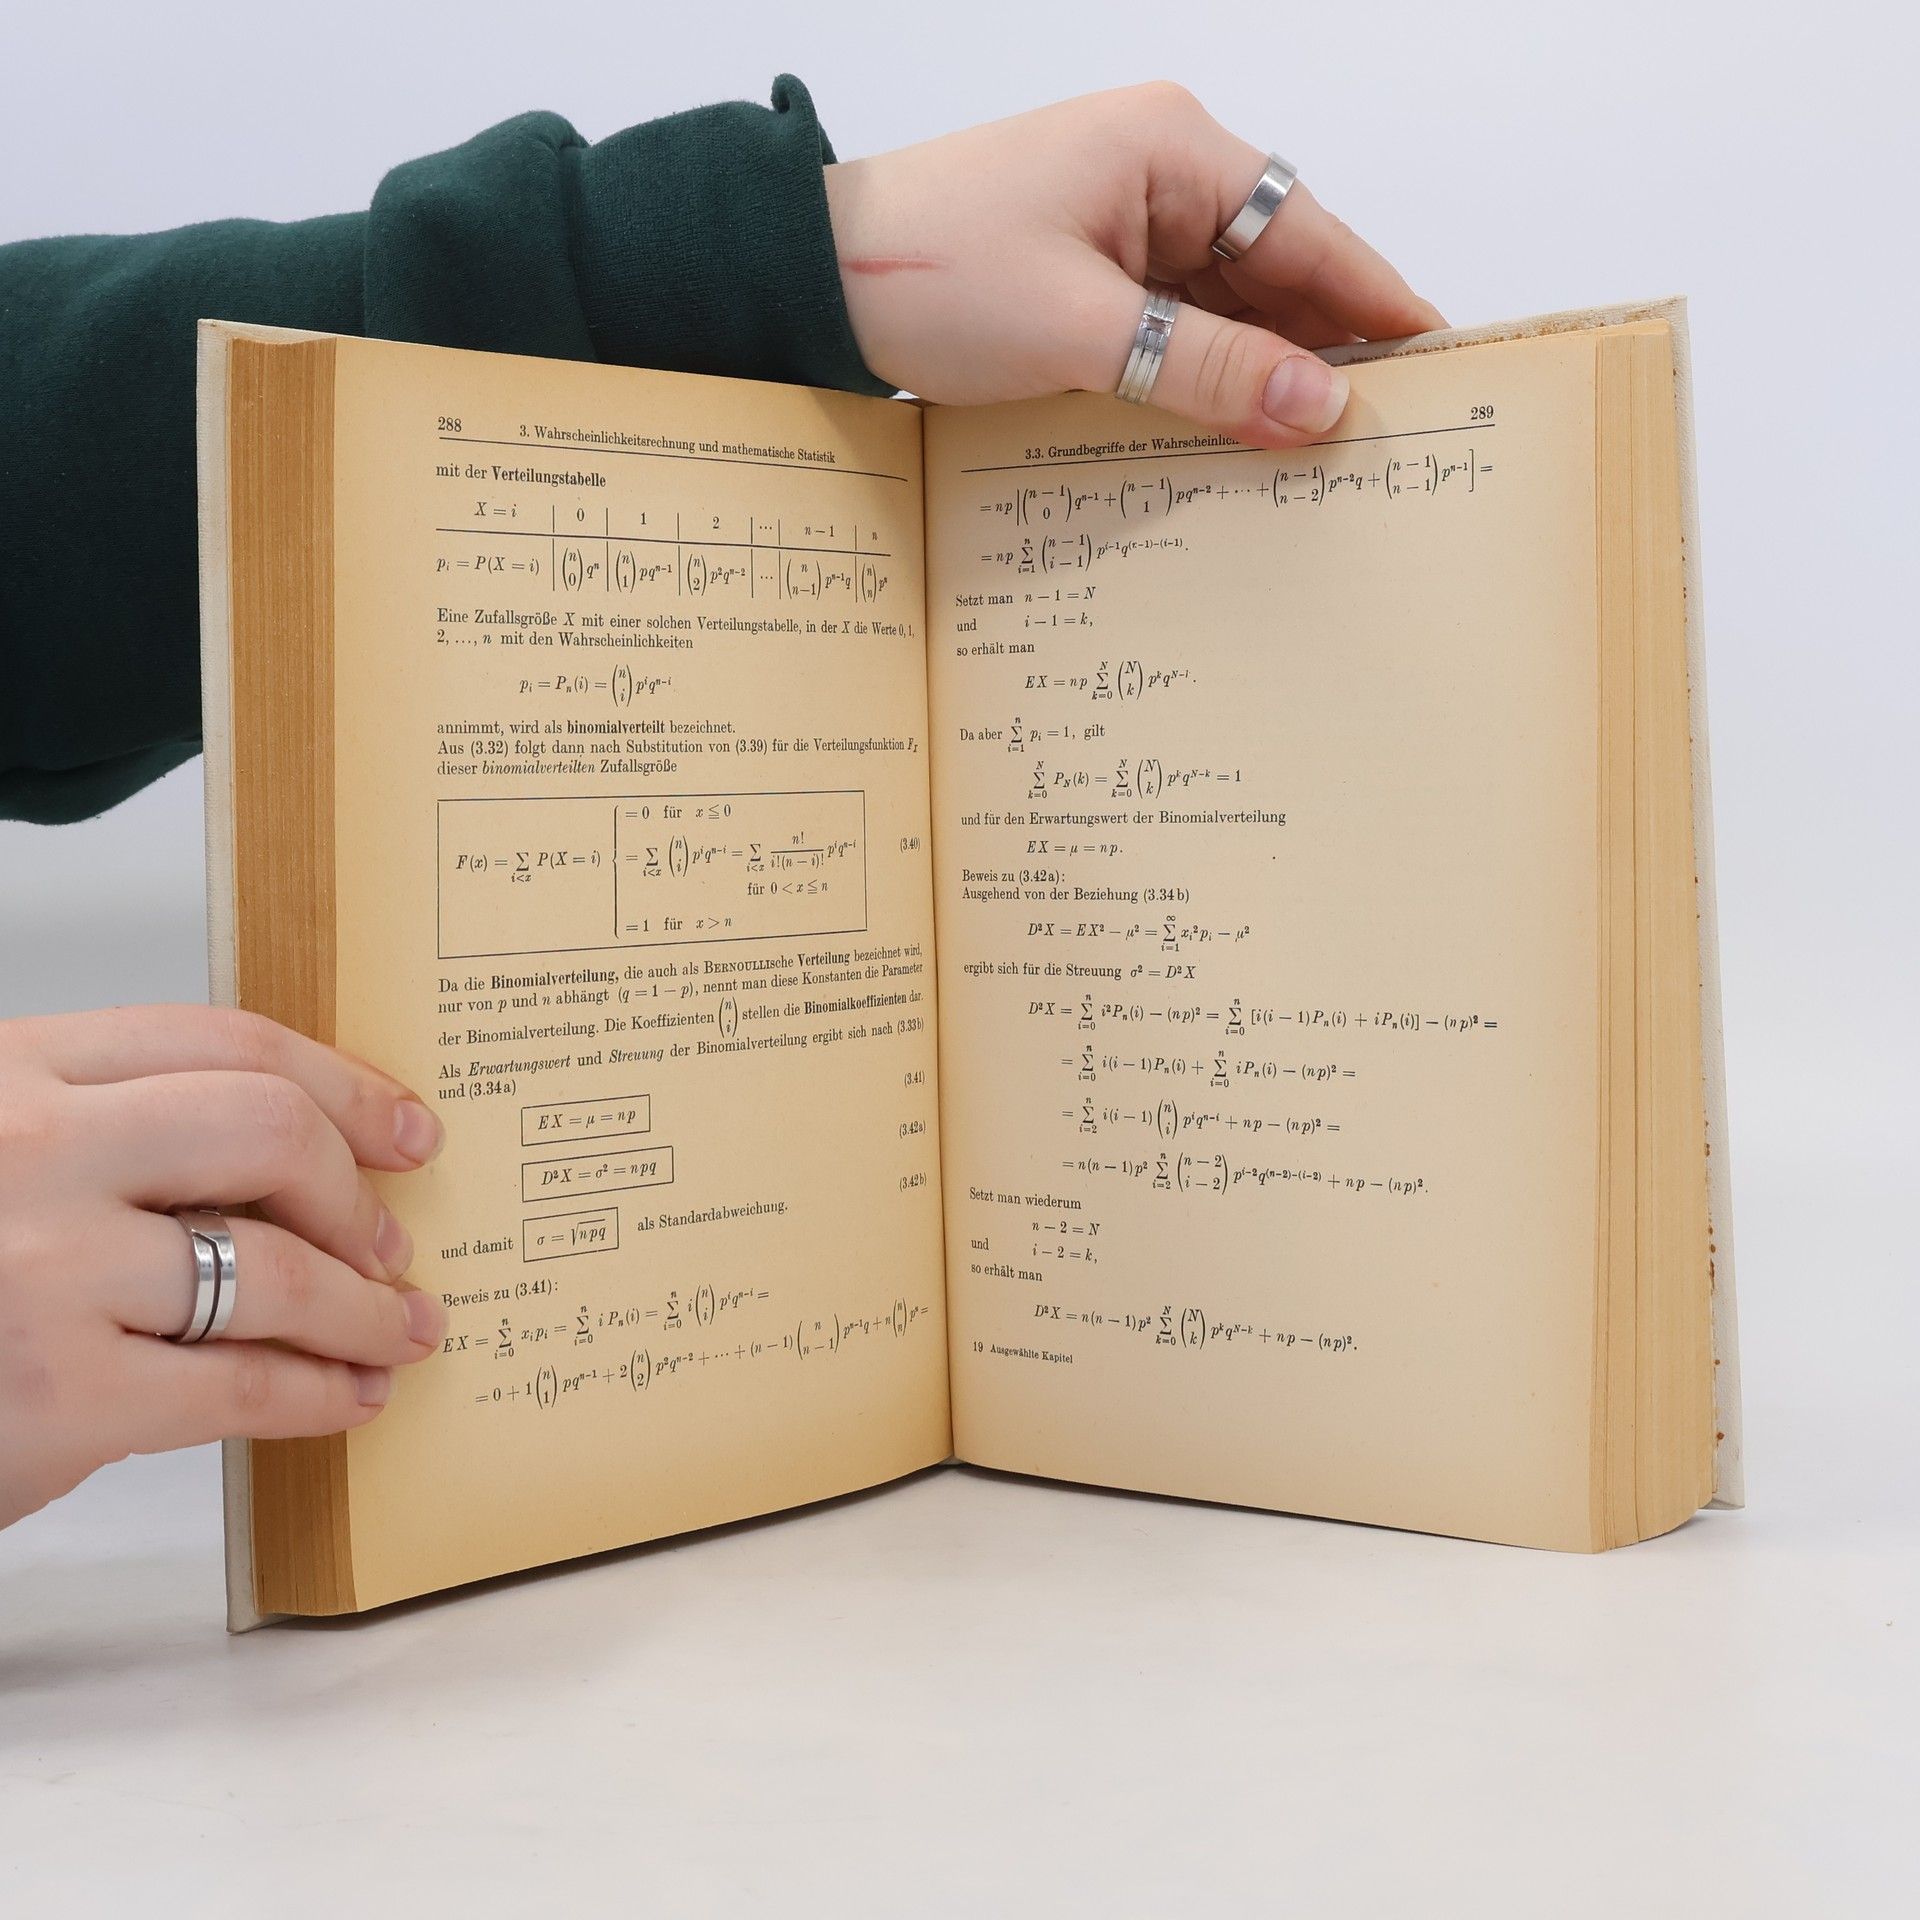 288 3. Wahrscheinlichkeitsrechnung und mathematische Statistik
mit der Verteilungstabelle
X = i | 0 | 1 | 2 | ⋯ | n − 1 | n
p_i = P(X = i) | (n über 0) qⁿ | (n über 1) pqⁿ⁻¹ | (n über 2) p²qⁿ⁻² | ⋯ | (n über n−1) pⁿ⁻¹q | (n über n) pⁿ
Eine Zufallsgröße X mit einer solchen Verteilungstabelle, in der X die Werte 0, 1,
2, …, n mit den Wahrscheinlichkeiten
p_i = P_n(i) = (n über i) pⁱqⁿ⁻ⁱ
annimmt, wird als binomialverteilt bezeichnet.
Aus (3.32) folgt dann nach Substitution von (3.39) für die Verteilungsfunktion F_x
dieser binomialverteilten Zufallsgröße
= 0 für x ≦ 0
F(x) = ∑_{i<x} P(X = i) { = ∑_{i<x} (n über i) pⁱqⁿ⁻ⁱ = ∑_{i<x} n!/(i!(n − i)!) pⁱqⁿ⁻ⁱ (3.40)
für 0 < x ≦ n
= 1 für x > n
Da die Binomialverteilung, die auch als BERNOULLIsche Verteilung bezeichnet wird,
nur von p und n abhängt (q = 1 − p), nennt man diese Konstanten die Parameter
der Binomialverteilung. Die Koeffizienten (n über i) stellen die Binomialkoeffizienten dar.
Als Erwartungswert und Streuung der Binomialverteilung ergibt sich nach (3.33b)
und (3.34a)
EX = μ = np (3.41)
D²X = σ² = npq (3.42a)
und damit σ = √npq als Standardabweichung. (3.42b)
Beweis zu (3.41):
EX = ∑_{i=0}^{n} x_i p_i = ∑_{i=0}^{n} i P_n(i) = ∑_{i=0}^{n} i (n über i) pⁱqⁿ⁻ⁱ =
= 0 + 1 (n über 1) pqⁿ⁻¹ + 2 (n über 2) p²qⁿ⁻² + ⋯ + (n − 1) (n über n − 1) pⁿ⁻¹q + n (n über n) pⁿ =
3.3. Grundbegriffe der 289
= np [(n − 1 über 0) qⁿ⁻¹ + (n − 1 über 1) pqⁿ⁻² + ⋯ + (n − 1 über n − 2) pⁿ⁻²q + (n − 1 über n − 1) pⁿ⁻¹] =
= np ∑_{i=1}^{n} (n − 1 über i − 1) pⁱ⁻¹q⁽ⁿ⁻¹⁾⁻⁽ⁱ⁻¹⁾.
Setzt man n − 1 = N
und i − 1 = k,
so erhält man
EX = np ∑_{k=0}^{N} (N über k) p^k q^{N−i}.
Da aber ∑_{i=1}^{n} p_i = 1, gilt
∑_{k=0}^{N} P_N(k) = ∑_{k=0}^{N} (N über k) p^k q^{N−k} = 1
und für den Erwartungswert der Binomialverteilung
EX = μ = np.
Beweis zu (3.42a):
Ausgehend von der Beziehung (3.34b)
D²X = EX² − μ² = ∑_{i=1}^{∞} x_i² p_i − μ²
ergibt sich für die Streuung σ² = D²X
D²X = ∑_{i=0}^{n} i²P_n(i) − (np)² = ∑_{i=0}^{n} [i(i − 1)P_n(i) + iP_n(i)] − (np)² =
= ∑_{i=0}^{n} i(i − 1)P_n(i) + ∑_{i=0}^{n} iP_n(i) − (np)² =
= ∑_{i=2}^{n} i(i − 1) (n über i) pⁱqⁿ⁻ⁱ + np − (np)² =
= n(n − 1)p² ∑_{i=2}^{n} (n − 2 über i − 2) pⁱ⁻²q⁽ⁿ⁻²⁾⁻⁽ⁱ⁻²⁾ + np − (np)².
Setzt man wiederum
n − 2 = N
und i − 2 = k,
so erhält man
D²X = n(n − 1)p² ∑_{k=0}^{N} (N über k) p^k q^{N−k} + np − (np)².
19 Ausgewählte Kapitel